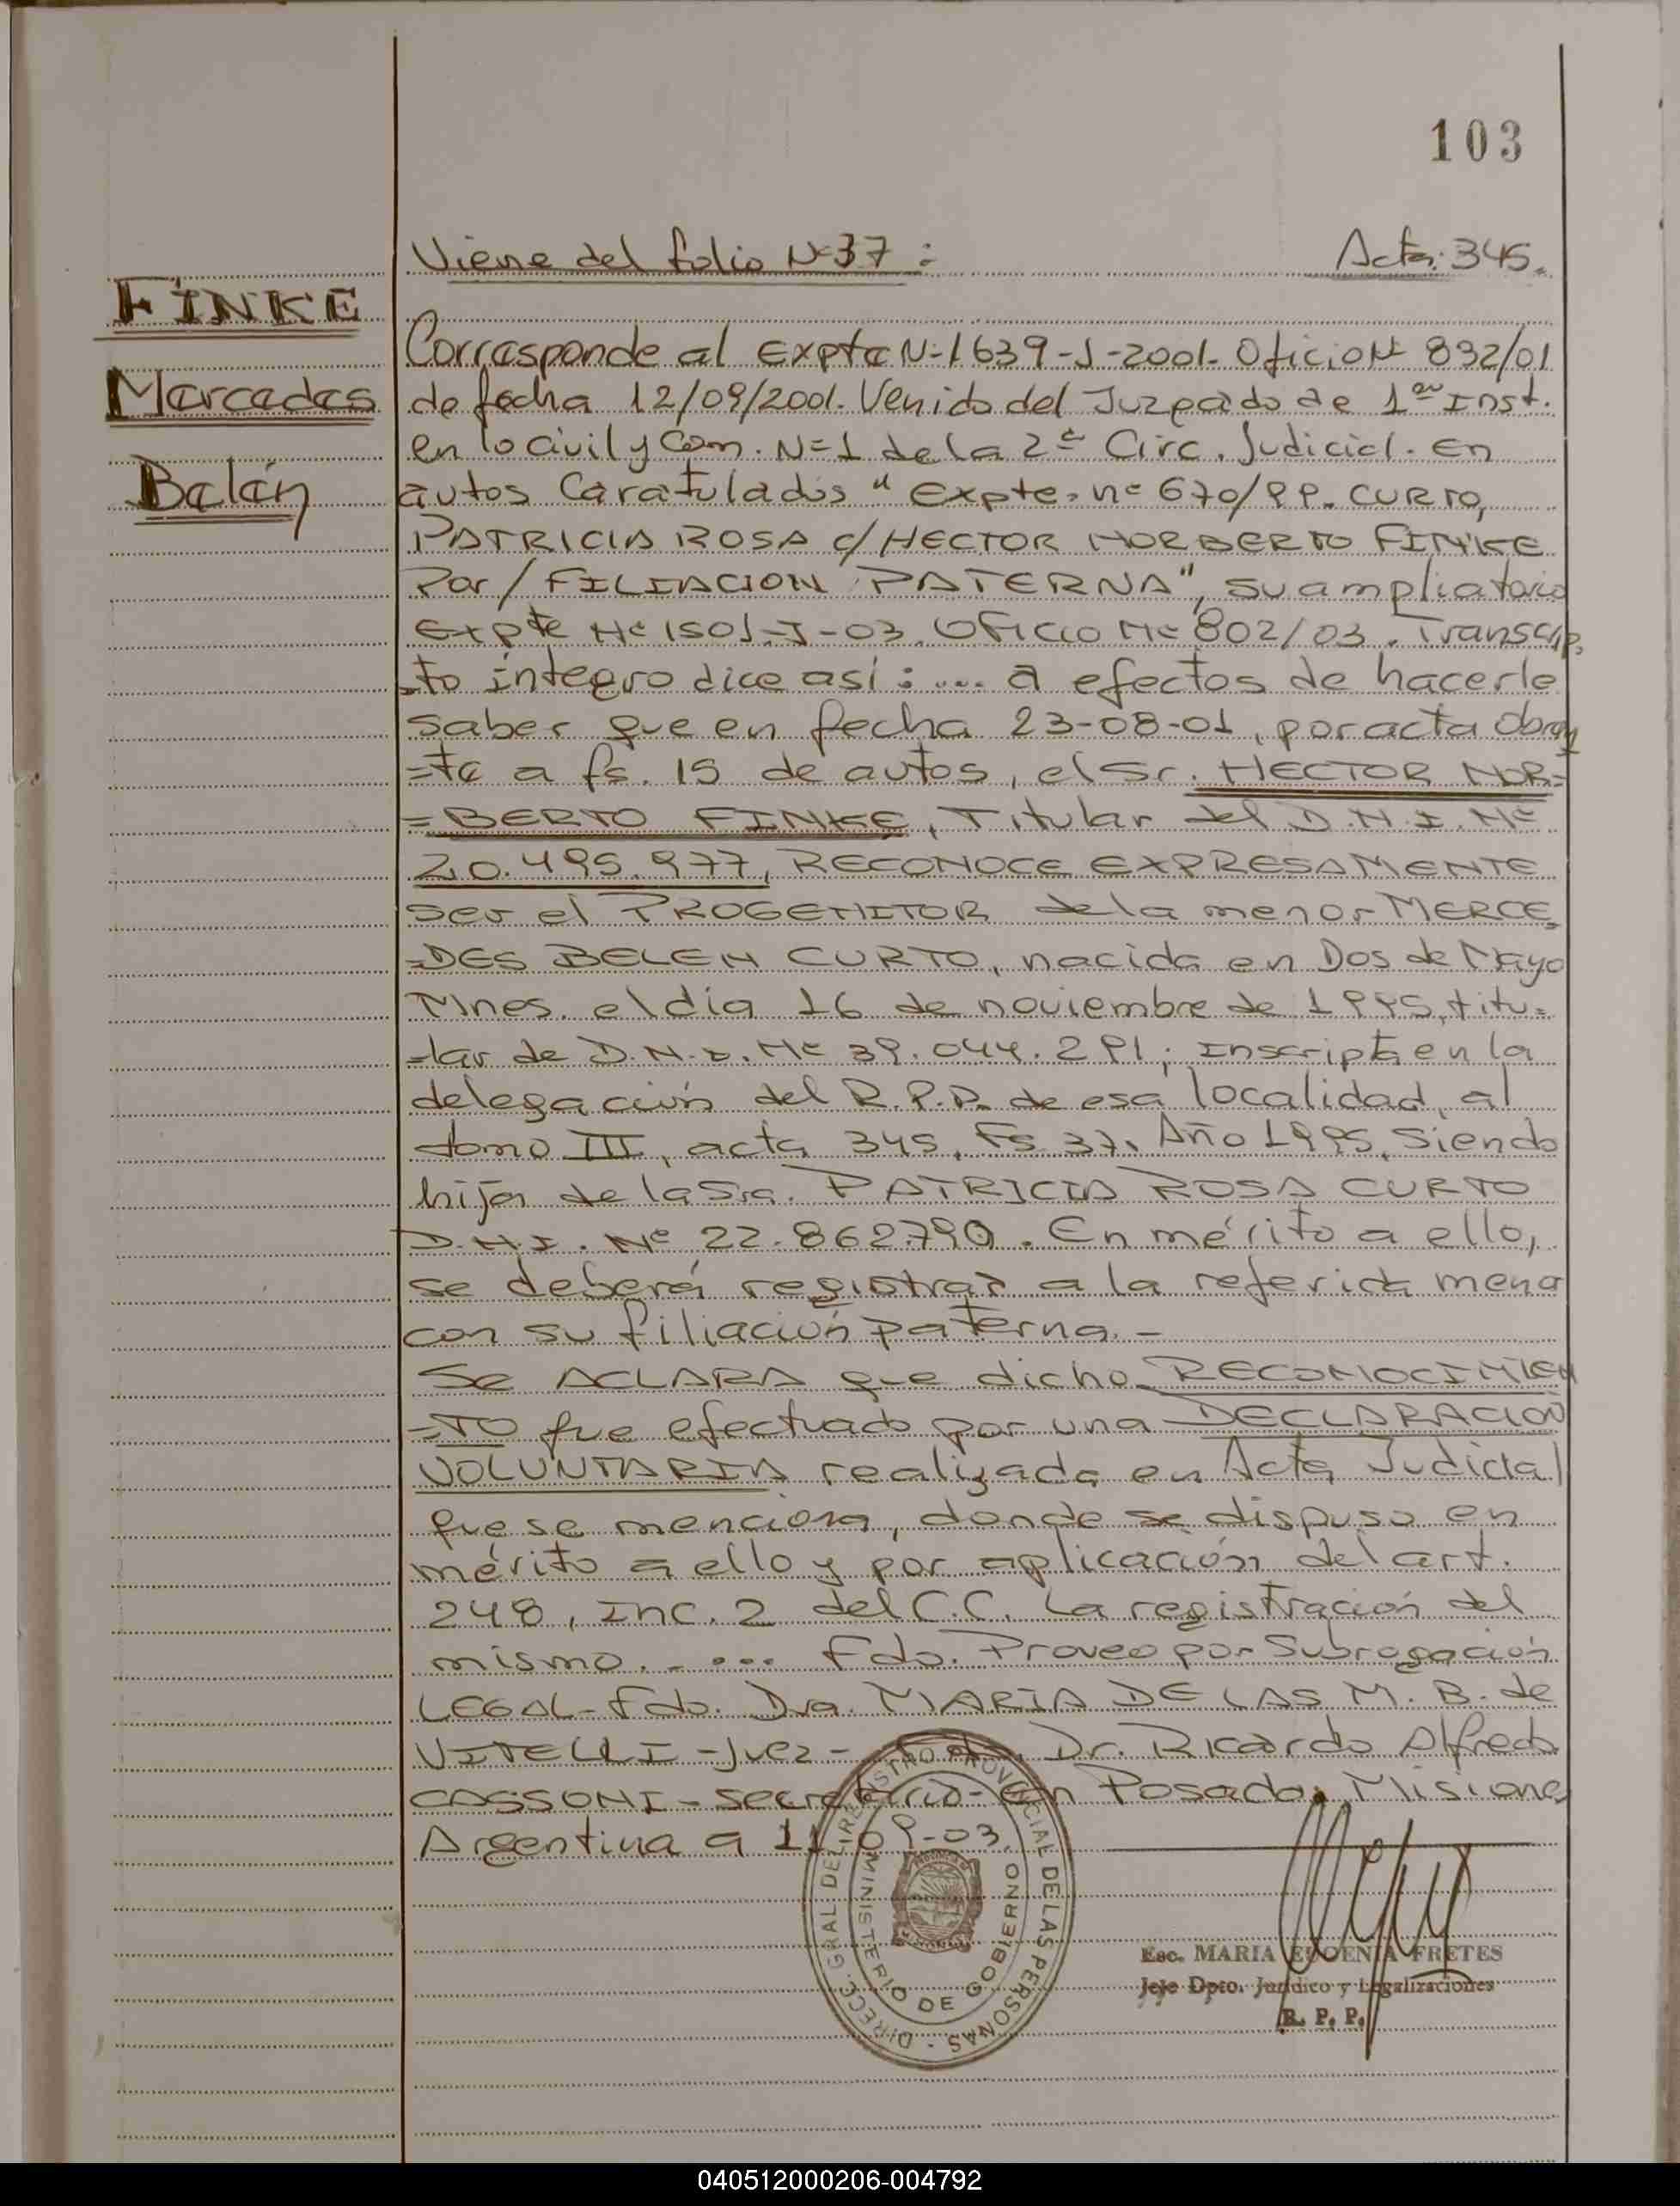 103
Viene del folio Nº 37 :
Acta: 345.
FINKE
Mercedes
Belén
Corresponde al Expte Nº 1639-J-2001. Oficio Nº 892/01
de fecha 12/09/2001. Venido del Juzgado de 1era Inst.
en lo civil y Com. Nº 1 de la 2ª Circ. Judicial. En
autos Caratulados " Expte. nº 670/99. CURTO,
PATRICIA ROSA c/ HECTOR NORBERTO FINKE
Por/ FILIACION PATERNA", su ampliatorio
Expte Nº 1501-J-03. Oficio Nº 802/03. Transcrip=
=to íntegro dice así : ... a efectos de hacerle
saber que en fecha 23-08-01, por acta obran
=te a fs. 15 de autos, el Sr. HECTOR NOR=
=BERTO FINKE, Titular del D.N.I. Nº
20.495.977, RECONOCE EXPRESAMENTE
ser el PROGENITOR de la menor MERCE=
=DES BELEN CURTO, nacida en Dos de Mayo
Mnes. el día 16 de noviembre de 1995, titu=
=lar de D.N.I. Nº 39.044.291; Inscripta en la
delegación del R.P.P. de esa localidad, al
tomo III, acta 345, Fs 37, Año 1995, Siendo
hija de la Sra. PATRICIA ROSA CURTO
D.N.I. Nº 22.862.790. En mérito a ello,
se deberá registrar a la referida menor
con su filiación paterna. -
Se ACLARA que dicho RECONOCIMIEN
=TO fue efectuado por una DECLARACION
VOLUNTARIA realizada en Acta Judicial
que se menciona, donde se dispuso en
mérito a ello y por aplicación del art.
248, Inc. 2 del C.C. La registración del
mismo. - ... Fdo. Proveo por Subrogación
LEGAL - Fdo. Dra. MARIA DE LAS M. B. de
VITELLI - Juez - Fdo. Dr. Ricardo Alfredo
CASSONI - Secretario - En Posadas, Misiones
Argentina a 11-09-03.
DIRECC. GRAL. DEL REGISTRO PROVINCIAL DE LAS PERSONAS
MINISTERIO DE GOBIERNO
Esc. MARIA EUGENIA FRETES
Jefe Dpto. Jurídico y Legalizaciones
R. P. P.
040512000206-004792